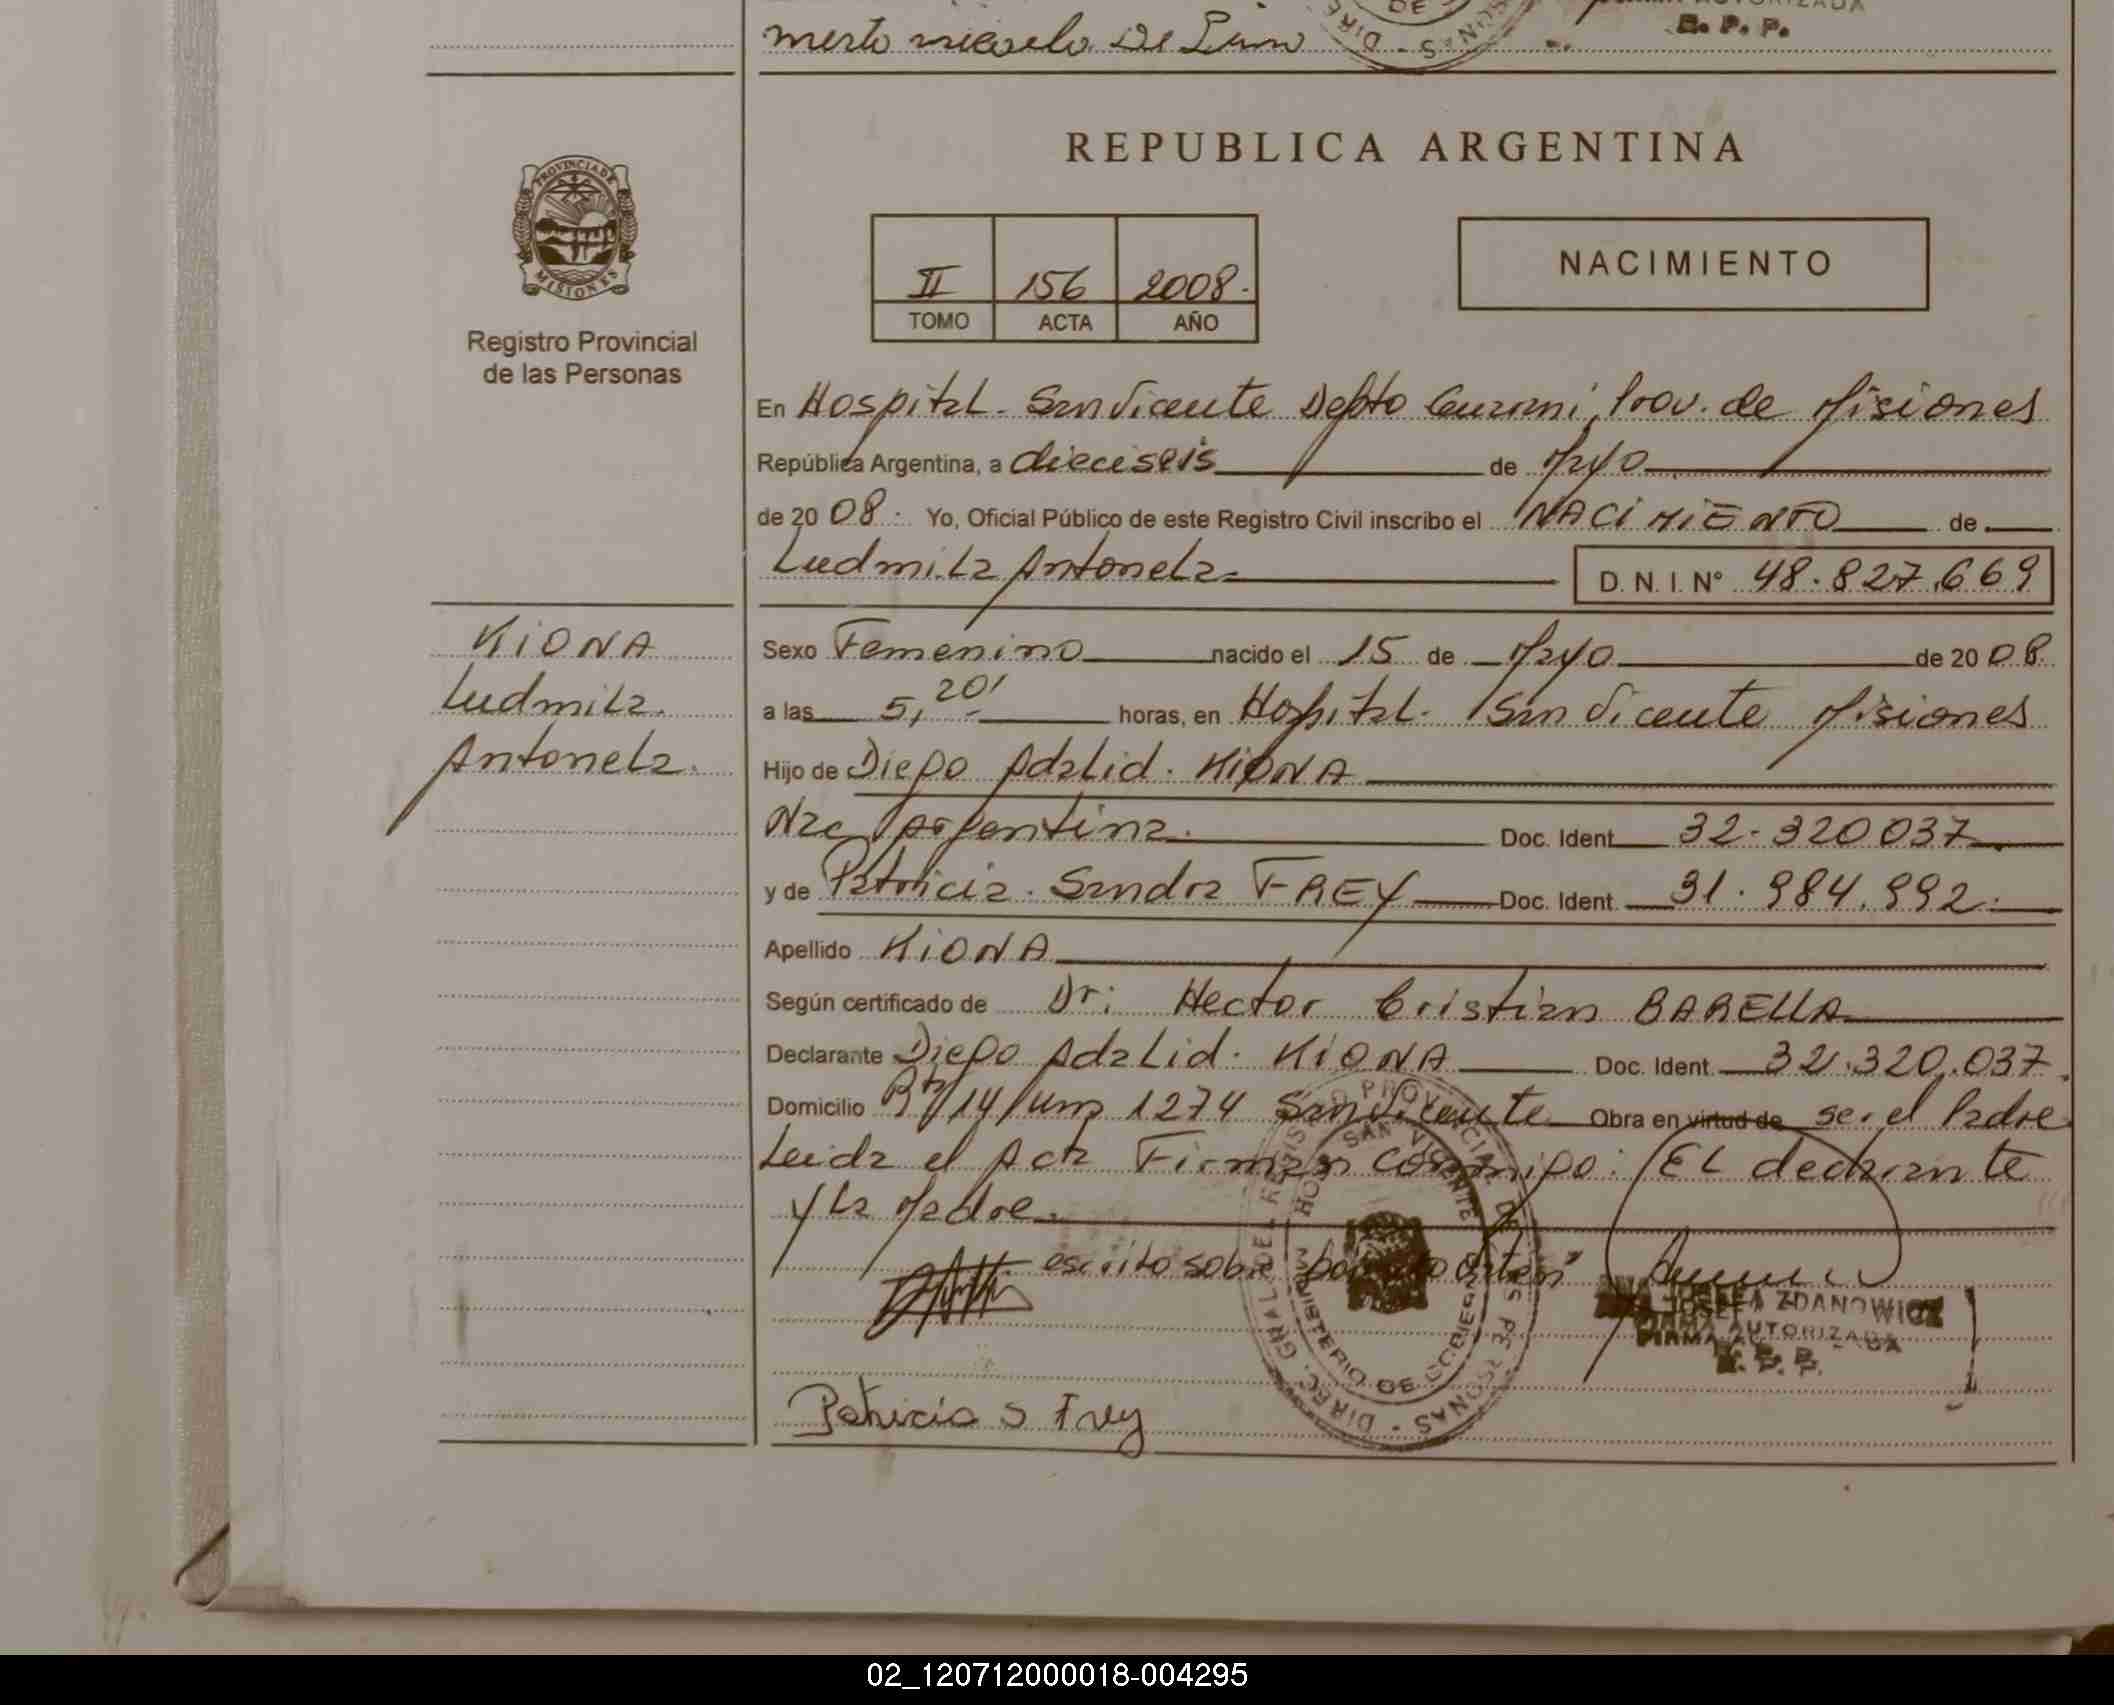 DE
DIRE
S.NOS
AUTORIZADA
E. P. P.
REPUBLICA ARGENTINA
PROVINCIA DE
MISIONES
Registro Provincial
de las Personas
II 156 2008.
TOMO ACTA AÑO
NACIMIENTO
En Hospital. San Vicente Depto Guarani, Prov. de Misiones
República Argentina, a dieciseis de Mayo
de 20 08. Yo, Oficial Público de este Registro Civil inscribo el NACIMIENTO de
Ludmila Antonela D. N. I. N° 48.827.669
KIONA
Ludmila.
Antonela.
Sexo Femenino nacido el 15 de Mayo de 20 08.
a las 5,20' horas, en Hospital. San Vicente Misiones
Hijo de Diego Adalid. KIONA
Nac Argentina. Doc. Ident. 32.320037
y de Patricia. Sandra FREY Doc. Ident. 31.984.992.
Apellido KIONA
Según certificado de Dr: Hector Cristian BARELLA
Declarante Diego Adalid. KIONA Doc. Ident. 32.320.037.
Domicilio Rta 14 Km 1274 San Vicente Obra en virtud de ser el Padre
Leida el Acta Firman conmigo: EL declarante
y La Madre.
escrito sobre
DIREC. GRAL DEL REGISTRO PROVINCIAL DE LAS PERSONAS
HOSP. SAN VICENTE
MINISTERIO DE GOBIERNO
JOSEFA ZDANOWICZ
FIRMA AUTORIZADA
Patricia S Frey
02_120712000018-004295